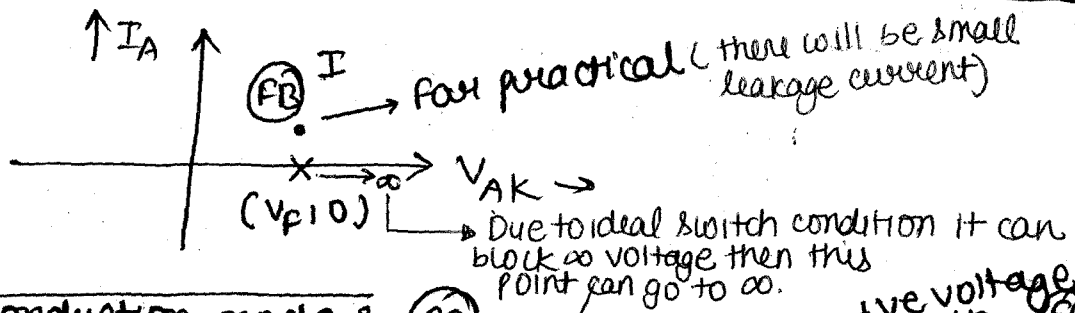 ↑ I_A
FB I → For practical (there will be small
leakage current)
× → ∞ V_AK →
(V_F, 0)
→ Due to ideal switch condition it can
block ∞ voltage then this
point can go to ∞.
ive voltage
mode